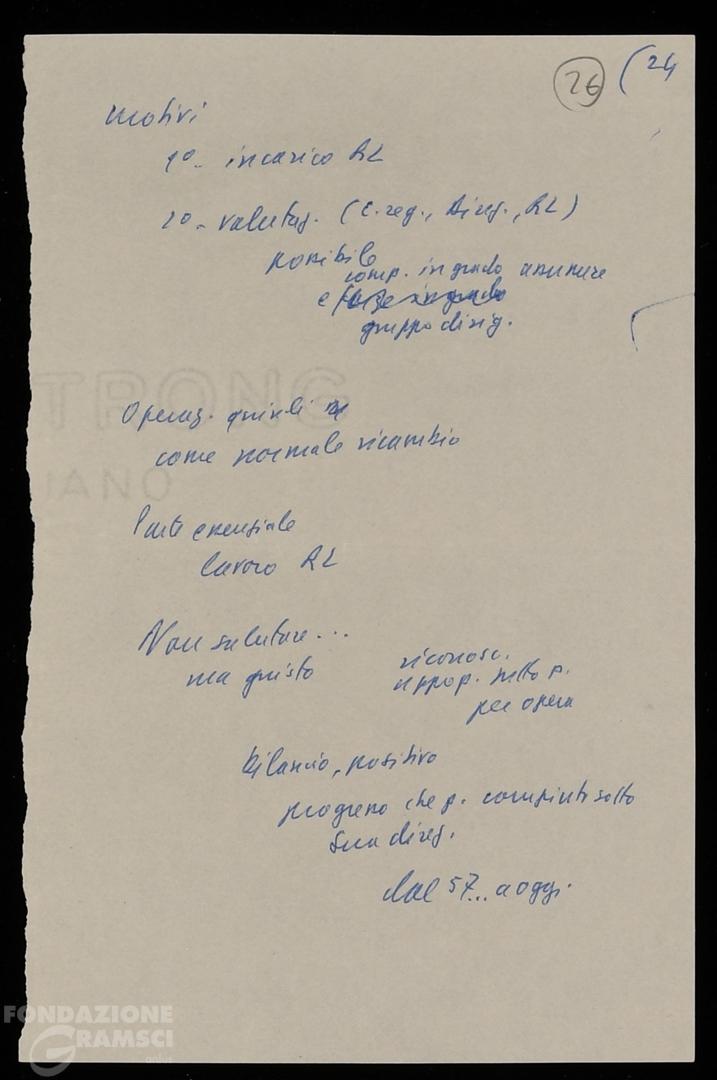 26 (24
motivi
1º - incarico RL
2º - valutaz. (C. reg., Direz., RL)
possibile
comp. in grado assumere
e forze in grado
gruppo dirig.
Operaz. quindi
come normale ricambio
Parte essenziale
lavoro RL
Non salutare...
ma giusto
riconosc.
rappop. tutto p.
per opera
Bilancio, positivo
progresso che p. compiuto sotto
Sua direz.
dal 57... a oggi.
TRONG
IANO
FONDAZIONE
GRAMSCI
onlus